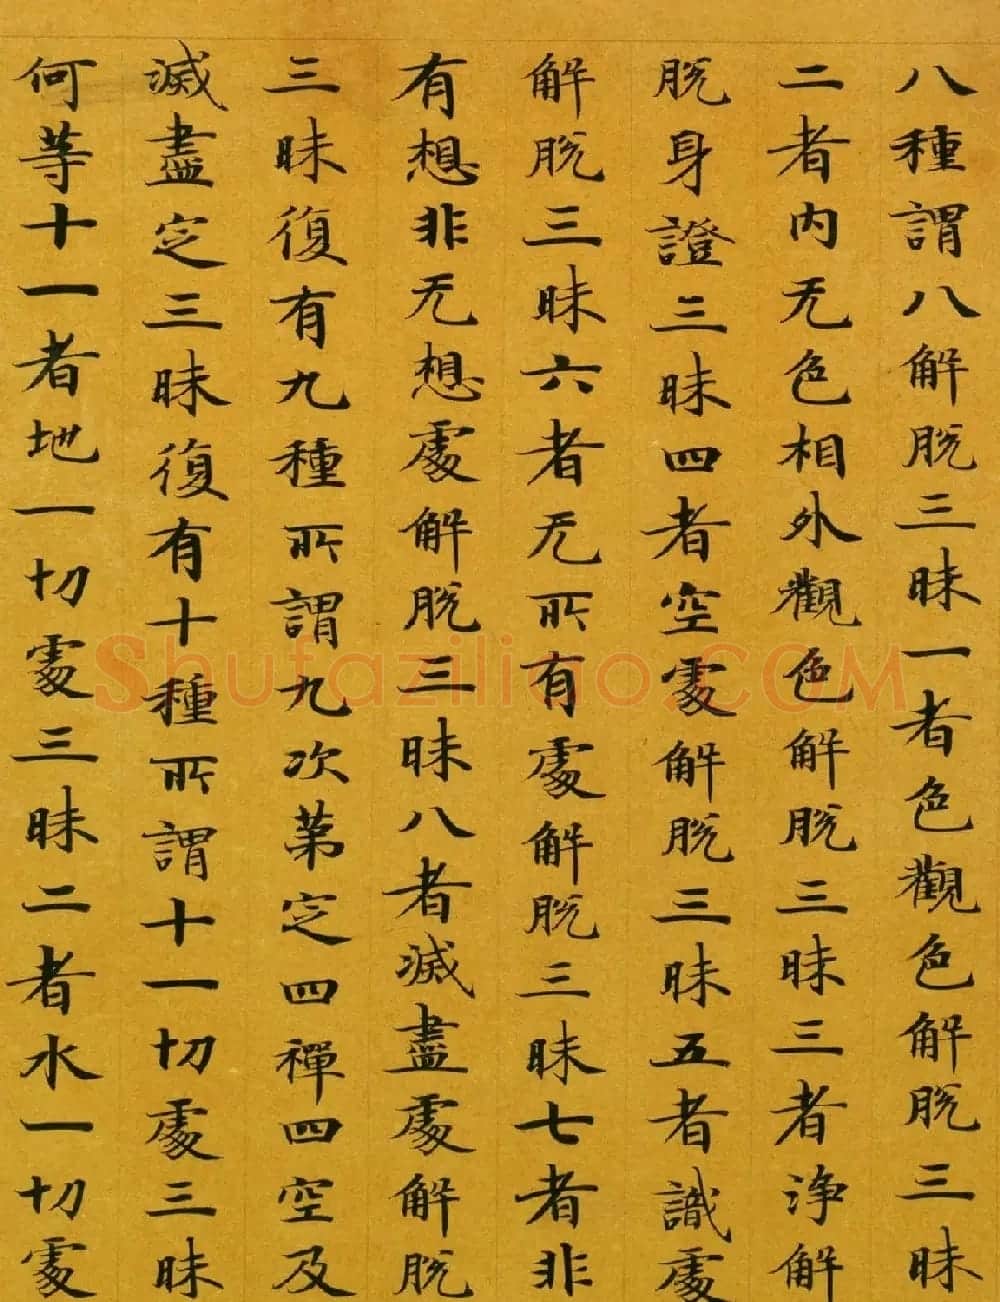 八種謂八解脫三昧一者色觀色解脫三昧
二者內无色相外觀色解脫三昧三者淨解
脫身證三昧四者空處解脫三昧五者識處
解脫三昧六者无所有處解脫三昧七者非
有想非无想處解脫三昧八者滅盡處解脫
三昧復有九種所謂九次第定四禪四空及
滅盡定三昧復有十種所謂十一切處三昧
何等十一者地一切處三昧二者水一切處
Shufaziliao.COM